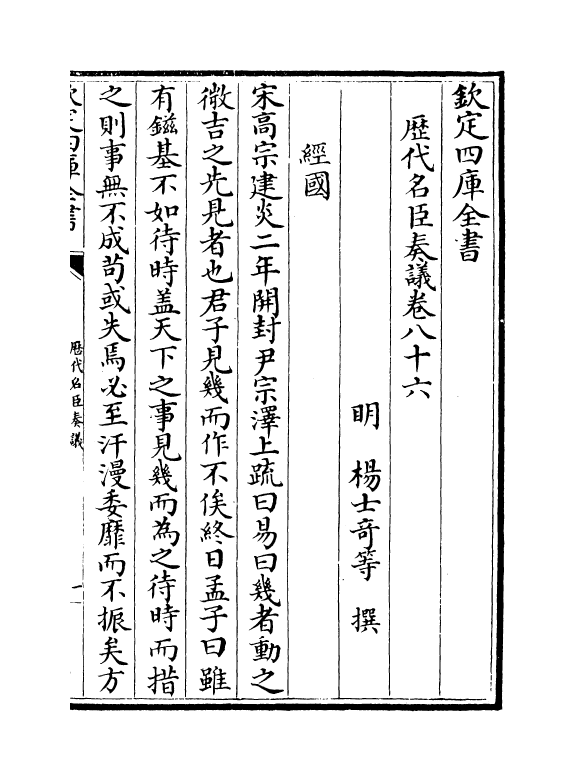 欽定四庫全書
歴代名臣奏議卷八十六
明 楊士竒等 撰
經國
宋髙宗建炎二年開封尹宗澤上䟽曰易曰幾者動之
微吉之先見者也君子見幾而作不俟終日孟子曰雖
有鎡基不如待時盖天下之事見幾而為之待時而措
之則事無不成茍或失焉必至汗漫委靡而不振矣方
欽定四庫全書
歴代名臣奏議
一